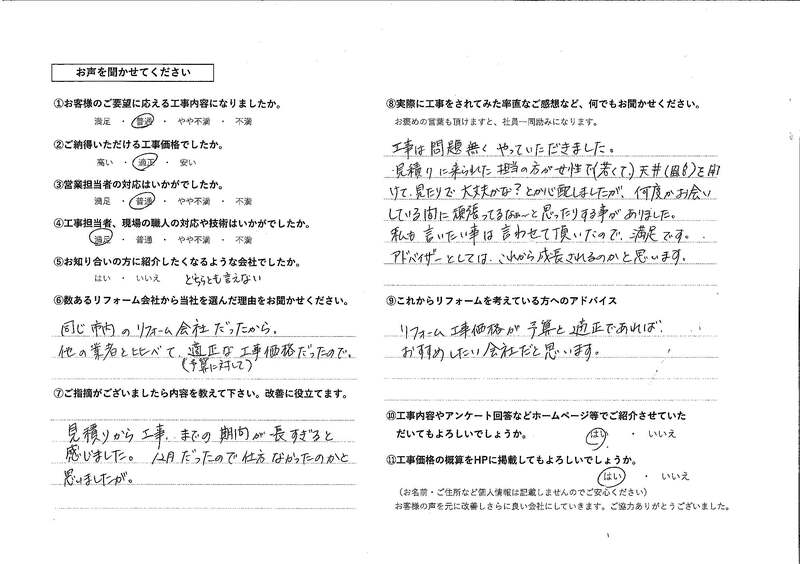 お声を聞かせてください
①お客様のご要望に応える工事内容になりましたか。
満足 ・ 普通 ・ やや不満 ・ 不満
②ご納得いただける工事価格でしたか。
高い ・ 適正 ・ 安い
③営業担当者の対応はいかがでしたか。
満足 ・ 普通 ・ やや不満 ・ 不満
④工事担当者、現場の職人の対応や技術はいかがでしたか。
満足 ・ 普通 ・ やや不満 ・ 不満
⑤お知り合いの方に紹介したくなるような会社でしたか。
はい ・ いいえ どちらとも言えない
⑥数あるリフォーム会社から当社を選んだ理由をお聞かせください。
同じ市内のリフォーム会社だったから。
他の業者と比べて、適正な工事価格だったので。
(予算に対して)
⑦ご指摘がございましたら内容を教えて下さい。改善に役立てます。
見積りから工事、までの期間が長すぎると
感じました。12月だったので仕方なかったのかと
思いましたが。
⑧実際に工事をされてみた率直なご感想など、何でもお聞かせください。
お褒めの言葉も頂けますと、社員一同励みになります。
工事は問題無くやっていただきました。
見積りに来られた担当の方が女性で(若くて)天井(風呂)を開
けて、見たりで大丈夫かな?とか心配しましたが、何度かお会い
している間に頑張ってるなぁ〜と思ったりする事がありました。
私も言いたい事は言わせて頂いたので、満足です。
アドバイザーとしては、これから成長されるのかと思います。
⑨これからリフォームを考えている方へのアドバイス
リフォーム工事価格が予算と適正であれば、
おすすめしたい会社だと思います。
⑩工事内容やアンケート回答などホームページ等でご紹介させていた
だいてもよろしいでしょうか。 はい ・ いいえ
⑪工事価格の概算をHPに掲載してもよろしいでしょうか。
はい ・ いいえ
(お名前・ご住所など個人情報は記載しませんのでご安心ください)
お客様の声を元に改善しさらに良い会社にしていきます。ご協力ありがとうございました。